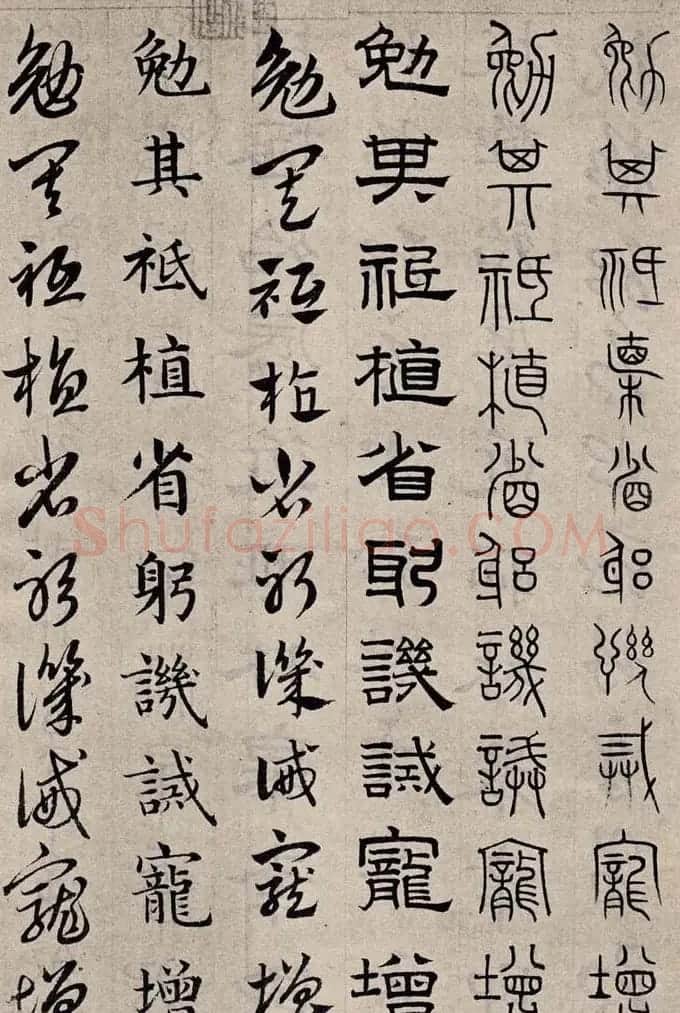 勉其祗植省躬譏誡寵增
勉其祗植省躬譏誡寵增
勉其祗植省躬譏誡寵增
勉其祗植省躬譏誡寵增
勉其祗植省躬譏誡寵增
勉其祗植省躬譏誡寵增
Shufaziliao.COM